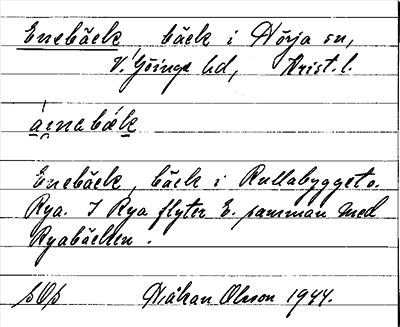 Enebäck bäck i Nörja sn,
V. Göinge hd, Krist. l.
áinabäk
Enebäck, bäck i Rullabygget o.
Rya. I Rya flyter E. samman med
Ryabäcken.
Håkan Olsson 1944.